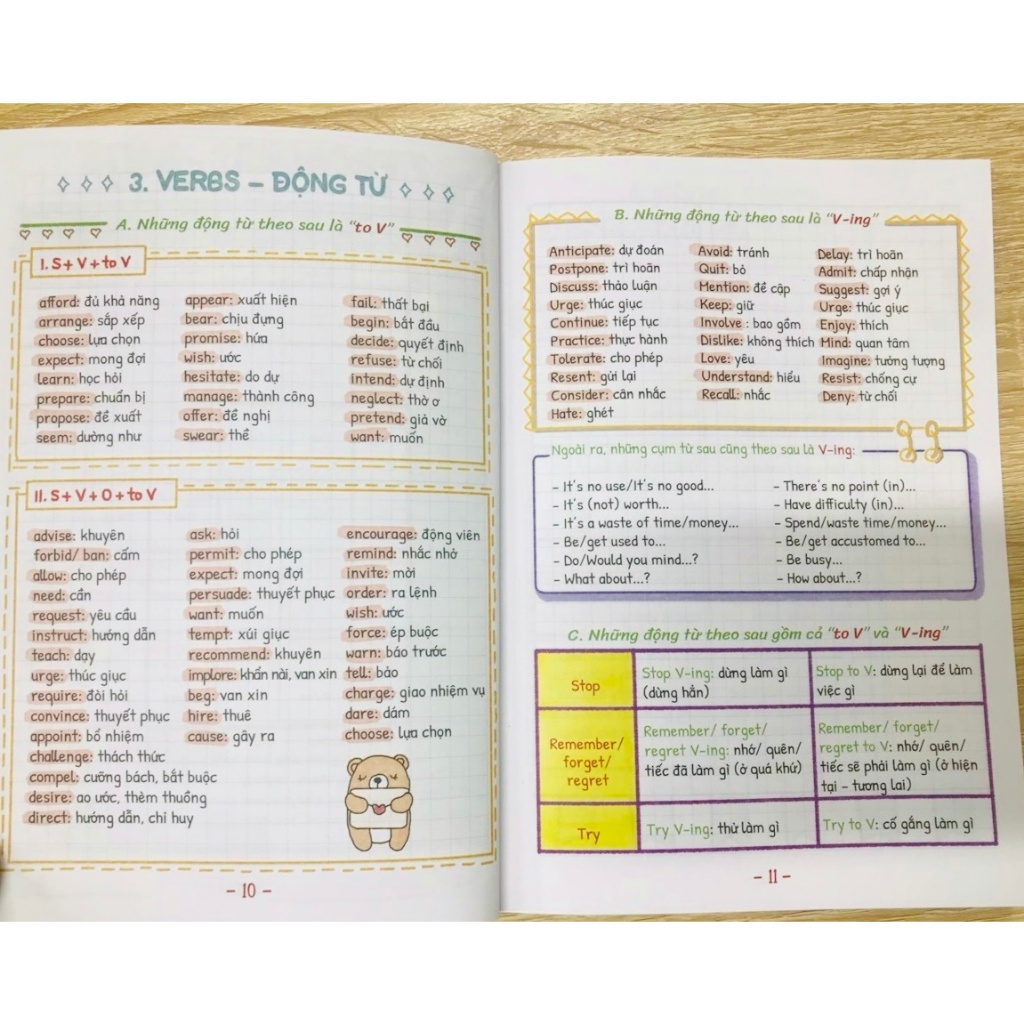 3. VERBS – ĐỘNG TỪ
A. Những động từ theo sau là "to V"
I. S + V + to V
afford: đủ khả năng
arrange: sắp xếp
choose: lựa chọn
expect: mong đợi
learn: học hỏi
prepare: chuẩn bị
propose: đề xuất
seem: dường như
appear: xuất hiện
bear: chịu đựng
promise: hứa
wish: ước
hesitate: do dự
manage: thành công
offer: đề nghị
swear: thề
fail: thất bại
begin: bắt đầu
decide: quyết định
refuse: từ chối
intend: dự định
neglect: thờ ơ
pretend: giả vờ
want: muốn
II. S + V + O + to V
advise: khuyên
forbid/ ban: cấm
allow: cho phép
need: cần
request: yêu cầu
instruct: hướng dẫn
teach: dạy
urge: thúc giục
require: đòi hỏi
convince: thuyết phục
appoint: bổ nhiệm
challenge: thách thức
compel: cưỡng bách, bắt buộc
desire: ao ước, thèm thuồng
direct: hướng dẫn, chỉ huy
ask: hỏi
permit: cho phép
expect: mong đợi
persuade: thuyết phục
want: muốn
tempt: xúi giục
recommend: khuyên
implore: khẩn nài, van xin
beg: van xin
hire: thuê
cause: gây ra
encourage: động viên
remind: nhắc nhở
invite: mời
order: ra lệnh
wish: ước
force: ép buộc
warn: báo trước
tell: bảo
charge: giao nhiệm vụ
dare: dám
choose: lựa chọn
– 10 –
B. Những động từ theo sau là "V-ing"
Anticipate: dự đoán
Postpone: trì hoãn
Discuss: thảo luận
Urge: thúc giục
Continue: tiếp tục
Practice: thực hành
Tolerate: cho phép
Resent: gửi lại
Consider: cân nhắc
Hate: ghét
Avoid: tránh
Quit: bỏ
Mention: đề cập
Keep: giữ
Involve : bao gồm
Dislike: không thích
Love: yêu
Understand: hiểu
Recall: nhắc
Delay: trì hoãn
Admit: chấp nhận
Suggest: gợi ý
Urge: thúc giục
Enjoy: thích
Mind: quan tâm
Imagine: tưởng tượng
Resist: chống cự
Deny: từ chối
Ngoài ra, những cụm từ sau cũng theo sau là V-ing:
– It's no use/It's no good...
– It's (not) worth...
– It's a waste of time/money...
– Be/get used to...
– Do/Would you mind...?
– What about...?
– There's no point (in)...
– Have difficulty (in)...
– Spend/waste time/money...
– Be/get accustomed to...
– Be busy...
– How about...?
C. Những động từ theo sau gồm cả "to V" và "V-ing"
Stop
Stop V-ing: dừng làm gì
(dừng hẳn)
Stop to V: dừng lại để làm
việc gì
Remember/
forget/
regret
Remember/ forget/
regret V-ing: nhớ/ quên/
tiếc đã làm gì (ở quá khứ)
Remember/ forget/
regret to V: nhớ/ quên/
tiếc sẽ phải làm gì (ở hiện
tại – tương lai)
Try
Try V-ing: thử làm gì
Try to V: cố gắng làm gì
– 11 –